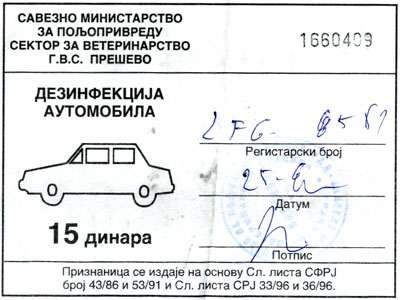 САВЕЗНО МИНИСТАРСТВО
ЗА ПОЉОПРИВРЕДУ
СЕКТОР ЗА ВЕТЕРИНАРСТВО
Г.В.С. ПРЕШЕВО
1660409
ДЕЗИНФЕКЦИЈА
АУТОМОБИЛА
Регистарски број
Датум
15 динара
Потпис
Признаница се издаје на основу Сл. листа СФРЈ
број 43/86 и 53/91 и Сл. листа СРЈ 33/96 и 36/96.